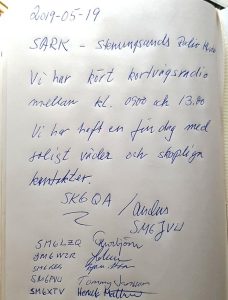 2019-05-19
SARK - Stenungsunds Radio
Vi har kört kortvågsradio
mellan kl. 0900 och 13.00
Vi har haft en fin dag med
soligt väder och skapliga
kontakter.
SK6QA / Anders
SM6JVW
SM6LZQ
SM6WZR
SM6
SM6PVU Tommy
SM6XTV Henrik